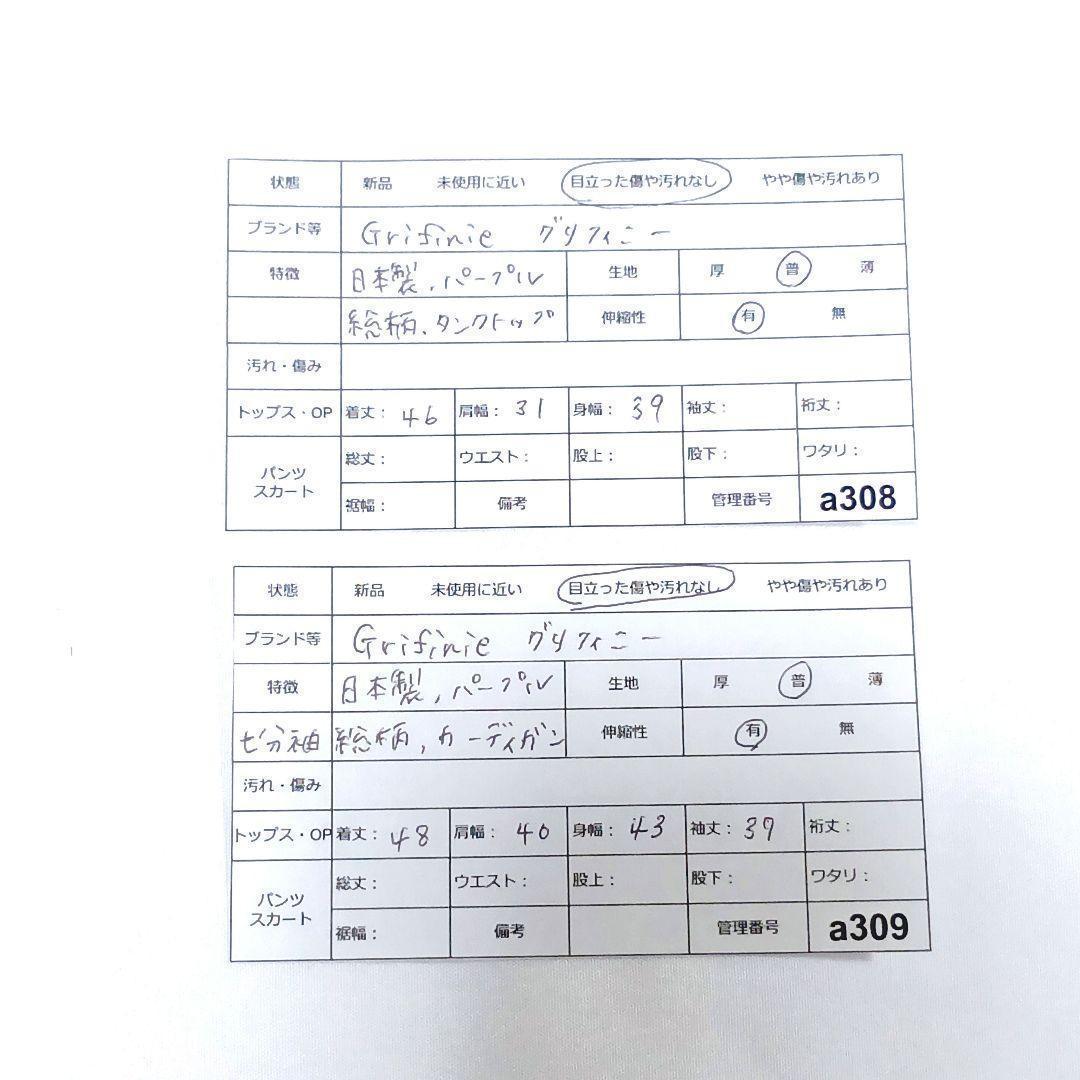 状態 新品 未使用に近い 目立った傷や汚れなし やや傷や汚れあり
ブランド等 Grifinie グリフィニー
特徴 日本製、パープル 生地 厚 普 薄
総柄、タンクトップ 伸縮性 有 無
汚れ・傷み
トップス・OP 着丈： 46 肩幅： 31 身幅： 39 袖丈： 裄丈：
パンツ スカート 総丈： ウエスト： 股上： 股下： ワタリ：
裾幅： 備考 管理番号 a308
状態 新品 未使用に近い 目立った傷や汚れなし やや傷や汚れあり
ブランド等 Grifinie グリフィニー
特徴 日本製、パープル 生地 厚 普 薄
七分袖 総柄、カーディガン 伸縮性 有 無
汚れ・傷み
トップス・OP 着丈： 48 肩幅： 40 身幅： 43 袖丈： 39 裄丈：
パンツ スカート 総丈： ウエスト： 股上： 股下： ワタリ：
裾幅： 備考 管理番号 a309